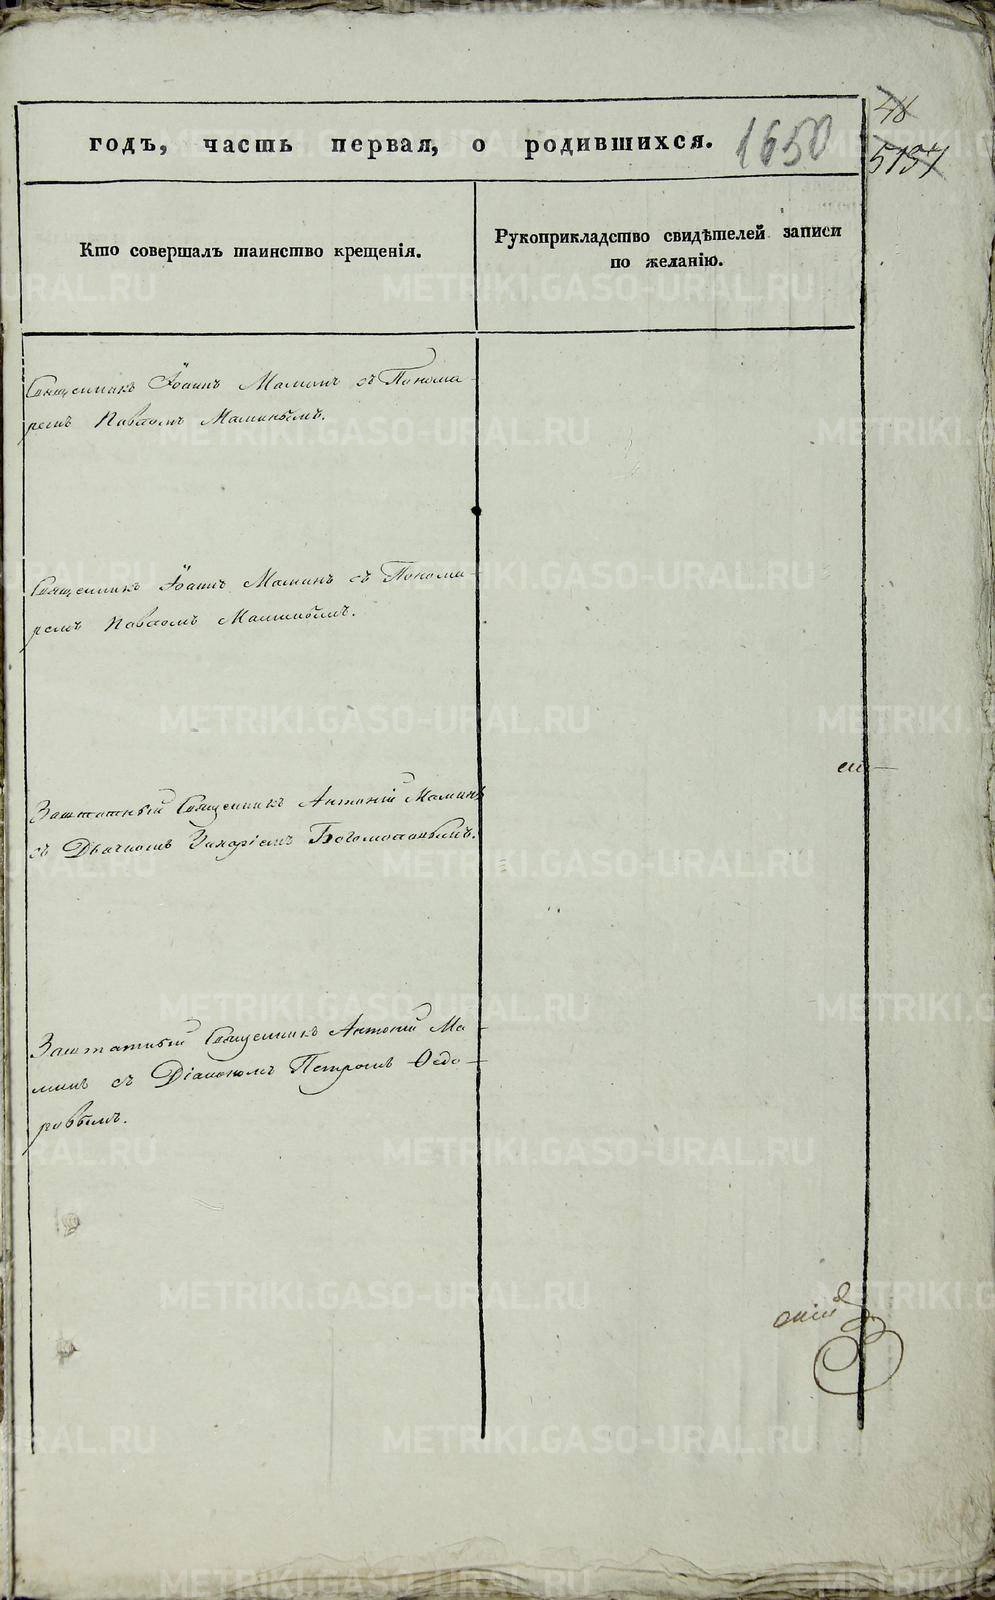 годъ, часть первая, о родившихся. 1650
48
5137
Кто совершалъ таинство крещенія.
Рукоприкладство свидѣтелей записи
по желанію.
Священникъ Іоаннъ Маминъ съ Понома-
ремъ Павломъ Маминымъ.
Священникъ Іоаннъ Маминъ съ Понома-
ремъ Павломъ Маминымъ.
Заштатный Священникъ Антоній Маминъ
съ Дьячкомъ Захаріемъ Богомоловымъ.
Заштатный Священникъ Антоній Ма-
минъ съ Діакономъ Петромъ Ѳедо-
ровымъ.
METRIKI.GASO-URAL.RU